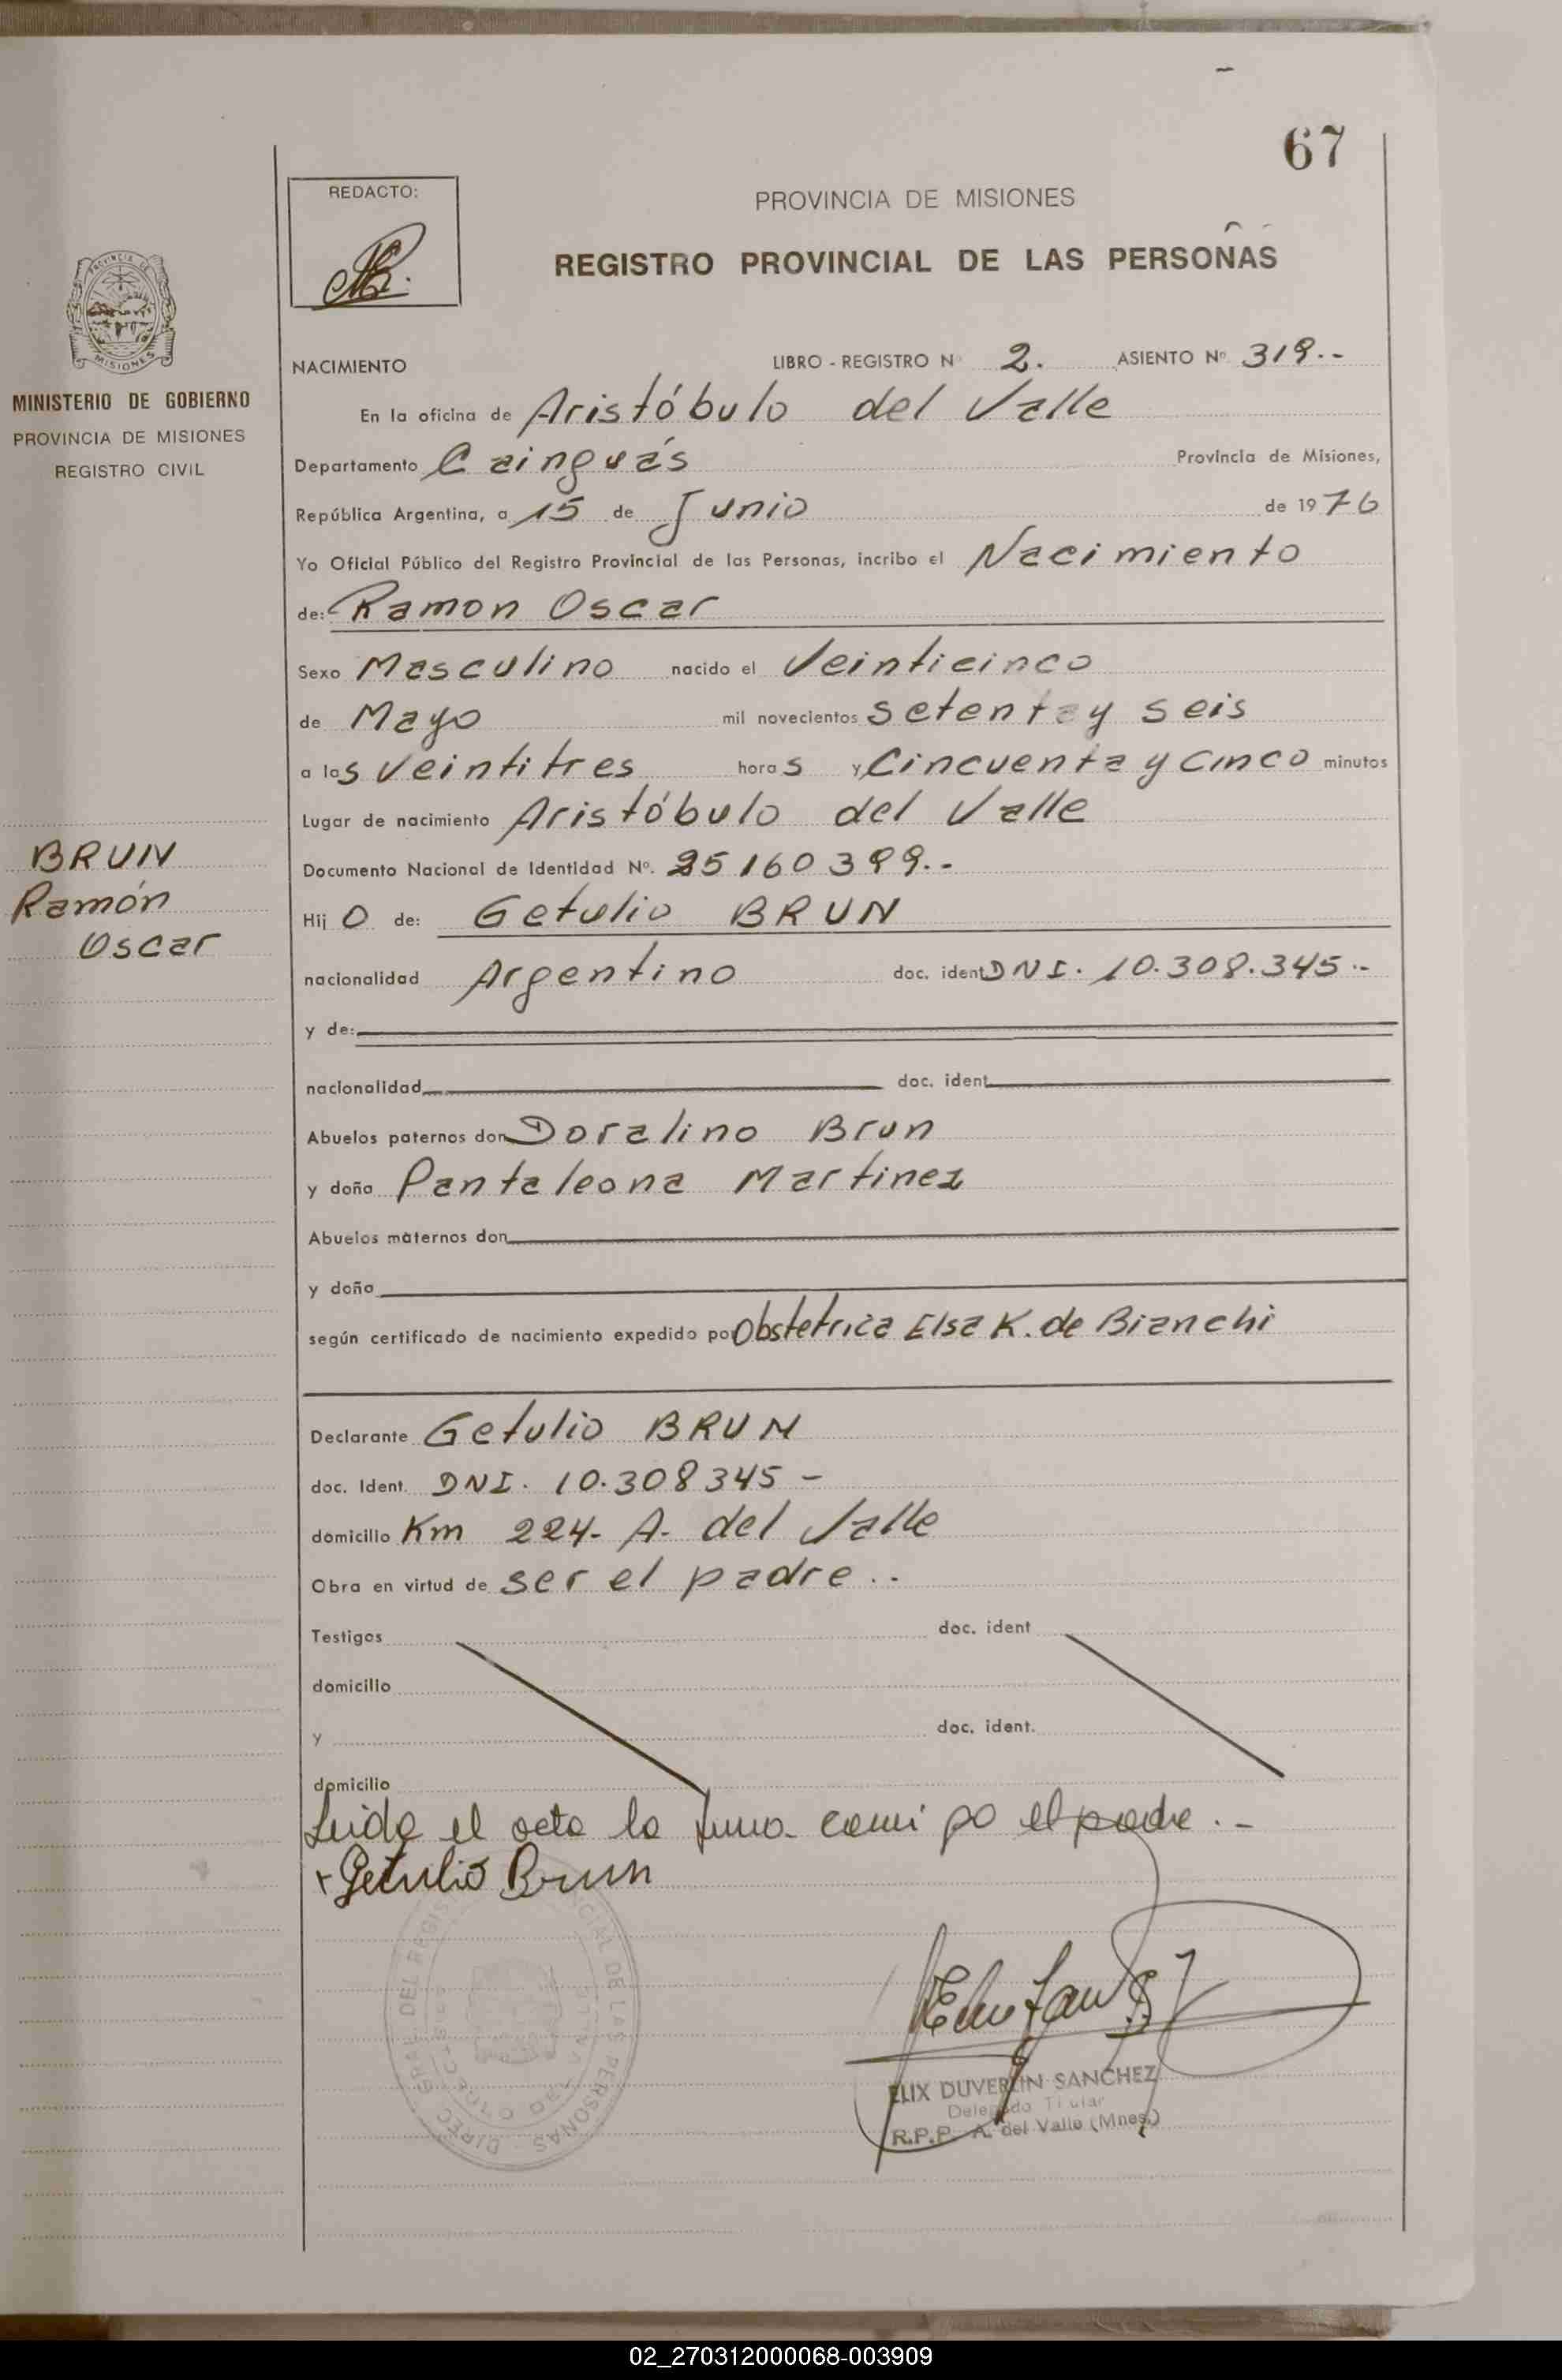 67
REDACTO:
PROVINCIA DE MISIONES
REGISTRO PROVINCIAL DE LAS PERSONAS
PROVINCIA DE
MISIONES
MINISTERIO DE GOBIERNO
PROVINCIA DE MISIONES
REGISTRO CIVIL
NACIMIENTO LIBRO - REGISTRO Nº 2. ASIENTO Nº 319.-
En la oficina de Aristóbulo del Valle
Departamento Cainguás Provincia de Misiones,
República Argentina, a 15 de Junio de 1976
Yo Oficial Público del Registro Provincial de las Personas, incribo el Nacimiento
de: Ramon Oscar
Sexo Masculino nacido el Veinticinco
de Mayo mil novecientos setenta y seis
a las veintitres horas y Cincuenta y Cinco minutos
Lugar de nacimiento Aristóbulo del Valle
Documento Nacional de Identidad Nº. 25160399.-
BRUN
Ramón
Oscar
Hijo de: Getulio BRUN
nacionalidad Argentino doc. ident DNI. 10.308.345.-
y de:
nacionalidad doc. ident
Abuelos paternos don Doralino Brun
y doña Pantaleona Martinez
Abuelos maternos don
y doña
según certificado de nacimiento expedido por Obstetrica Elsa K. de Bianchi
Declarante Getulio BRUN
doc. Ident. DNI. 10.308345 -
domicilio Km 224- A. del Valle
Obra en virtud de ser el padre..
Testigos doc. ident
domicilio
y doc. ident.
domicilio
Leida el acta la firma el padre.-
Getulio Brun
DIREC GRAL DEL REGIS CIAL DE LAS PERSONAS
ELIX DUVERLIN SANCHEZ
Delegado Titular
R.P.P. A. del Valle (Mnes.)
02_270312000068-003909